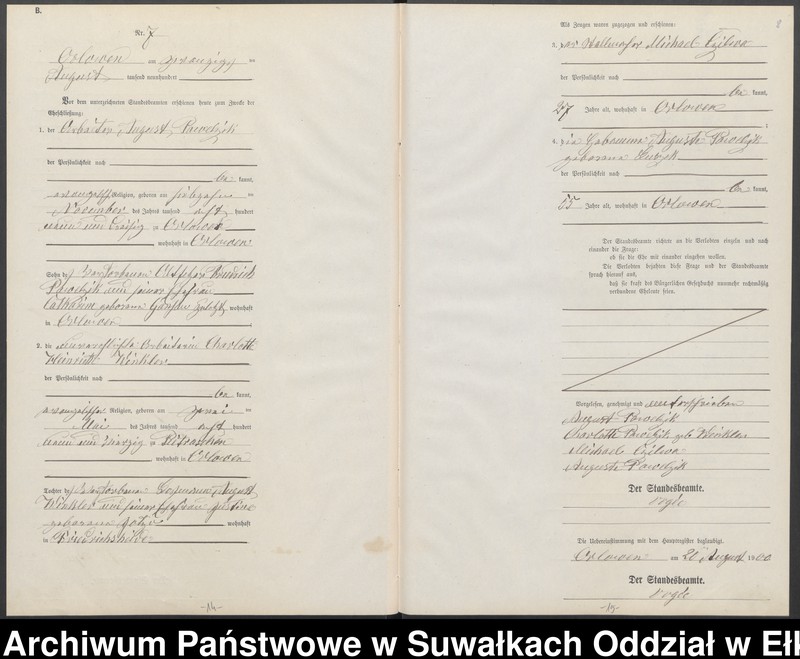 B.
Nr. 7
Orlowen am zwanzigsten
August tausend neunhundert
Vor dem unterzeichneten Standesbeamten erschienen heute zum Zwecke der
Eheschließung:
1. der Arbeiter August Pawelzik
der Persönlichkeit nach
be kannt,
evangelischer Religion, geboren am siebzehnten
November des Jahres tausend acht hundert
neun und dreißig zu Orlowen
wohnhaft in Orlowen
Sohn des verstorbenen
Pawelzik und seiner Ehefrau
Catharine geborene wohnhaft
in Orlowen
2. die unverehelichte Arbeiterin Charlotte
Heinriette Winkler
der Persönlichkeit nach
be kannt,
evangelischer Religion, geboren am zwei
Mai des Jahres tausend acht hundert
neun und vierzig zu Pietraschen
wohnhaft in Orlowen
Tochter des verstorbenen August
Winkler und seiner Ehefrau Justine
geborene wohnhaft
in
-14-
8
Als Zeugen waren zugezogen und erschienen:
3. der Michael Czilwa
der Persönlichkeit nach
be kannt,
27 Jahre alt, wohnhaft in Orlowen
;
4. die Hebamme Auguste Pawelzik
geborene
der Persönlichkeit nach
be kannt,
65 Jahre alt, wohnhaft in Orlowen
Der Standesbeamte richtete an die Verlobten einzeln und nach
einander die Frage:
ob sie die Ehe mit einander eingehen wollen.
Die Verlobten bejahten diese Frage und der Standesbeamte
sprach hierauf aus,
daß sie kraft des Bürgerlichen Gesetzbuchs nunmehr rechtmäßig
verbundene Eheleute seien.
Vorgelesen, genehmigt und unterschrieben
August Pawelzik
Charlotte Pawelzik geb Winkler
Michael Czilwa
Auguste Pawelzik
Der Standesbeamte.
Die Uebereinstimmung mit dem Hauptregister beglaubigt.
Orlowen am 20 August 1900
Der Standesbeamte.
-15-
Archiwum Państwowe w Suwałkach Oddział w Eł